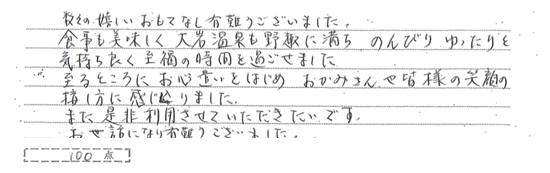 数々の嬉しいおもてなし有難うございました。
食事も美味しく 大岩温泉も野趣に満ち のんびり ゆったりと
気持ち良く 至福の時間を過ごせました
至るところに お心遣いをはじめ おかみさんや皆様の笑顔の
接し方に感じ入りました。
また是非利用させていただきたいです。
お世話になり有難うございました。
100点